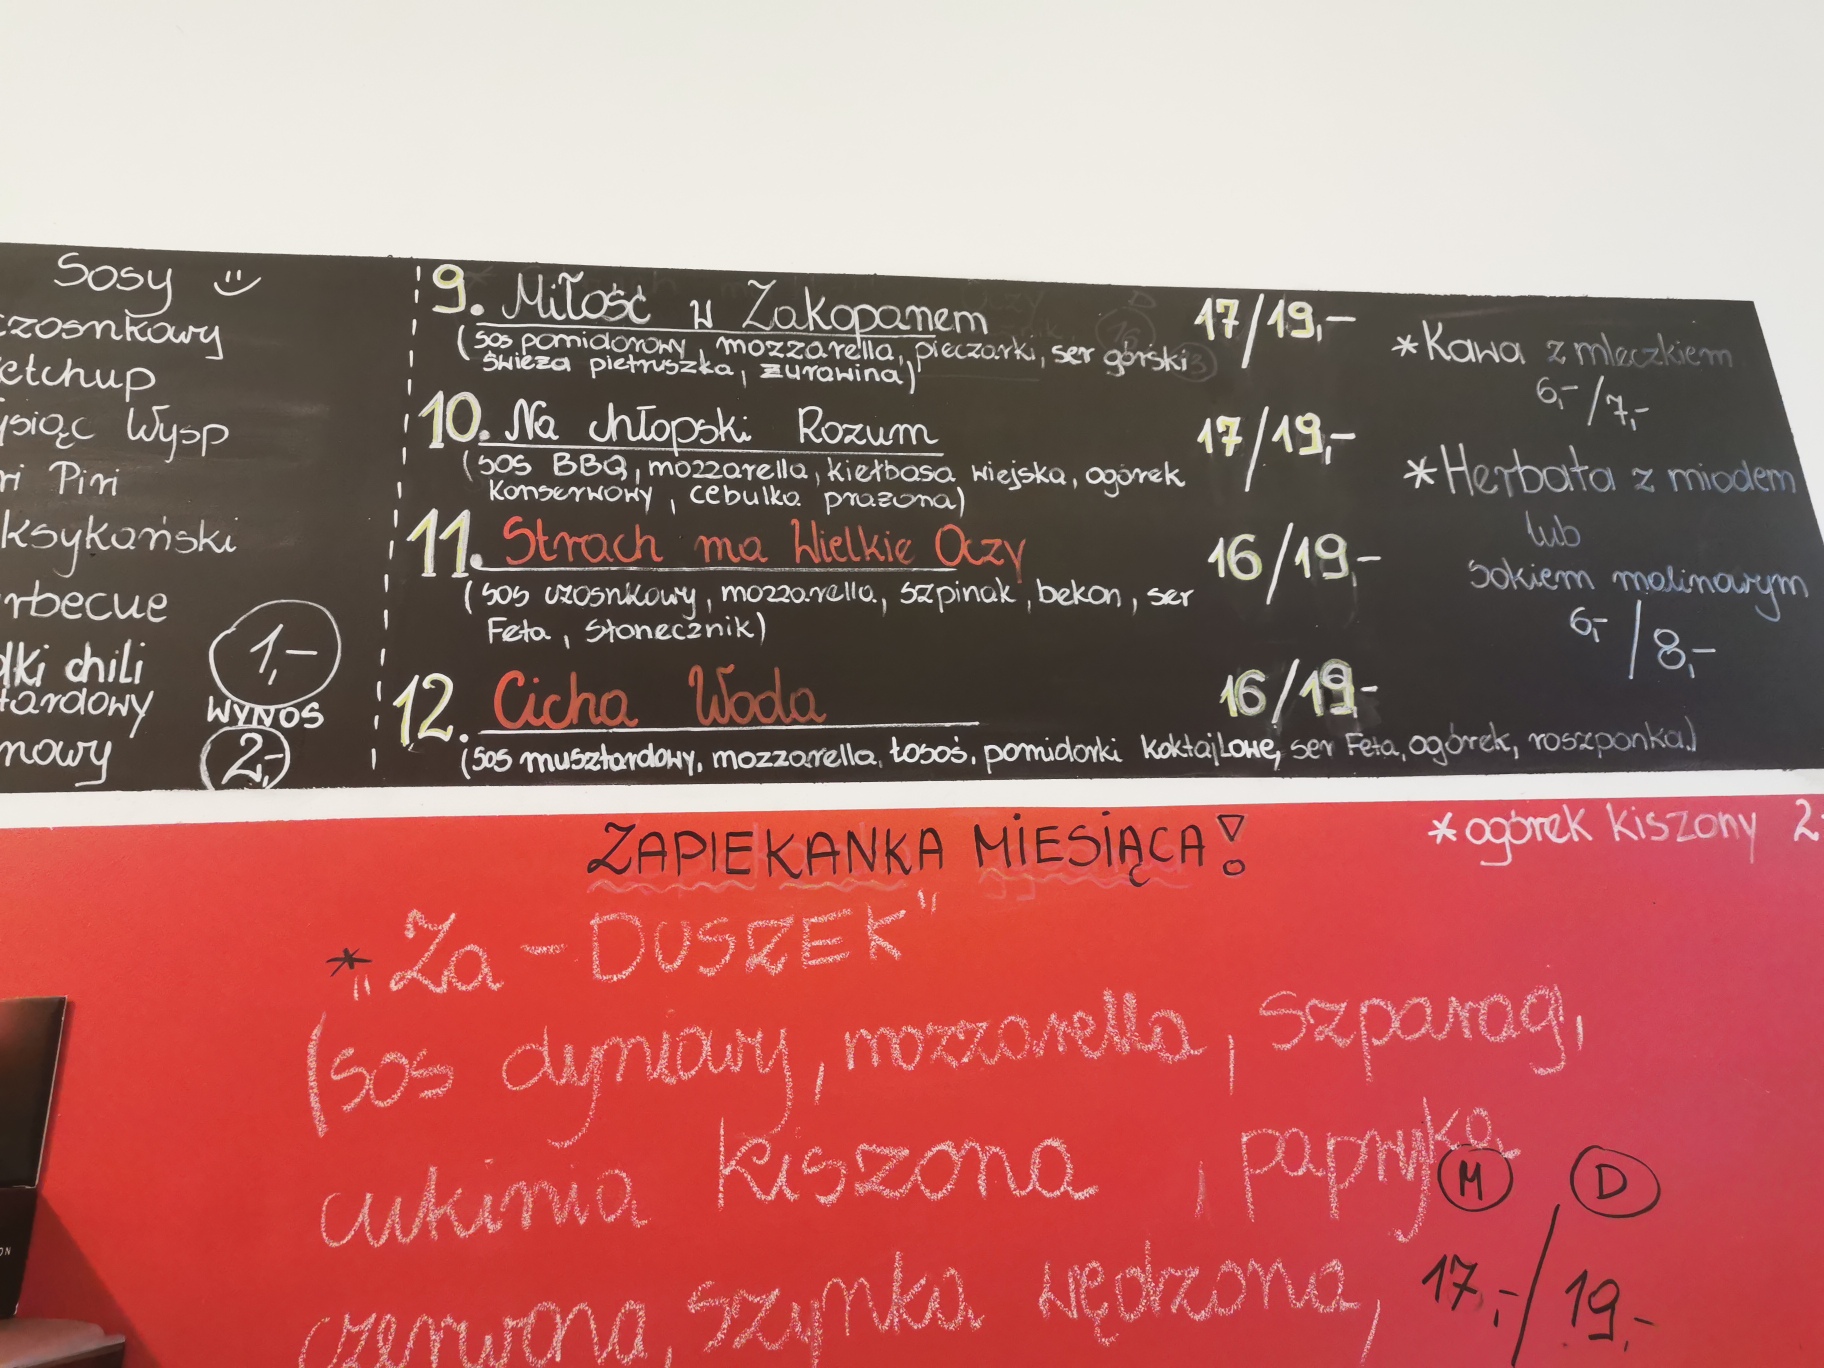 Sosy
czosnkowy
etchup
ysiąc Wysp
ri Piri
ksykański
rbecue
dki chili
tardowy
nowy
1,-
WYNOS
2,-
9. Miłość w Zakopanem 17/19,-
(sos pomidorowy, mozzarella, pieczarki, ser górski
świeża pietruszka, żurawina)
10. Na chłopski Rozum 17/19,-
(sos BBQ, mozzarella, kiełbasa wiejska, ogórek
konserwowy, cebulka prażona)
11. Strach ma Wielkie Oczy 16/19,-
(sos czosnkowy, mozzarella, szpinak, bekon, ser
Feta, słonecznik)
12. Cicha Woda 16/19,-
(sos musztardowy, mozzarella, łosoś, pomidorki koktajlowe, ser Feta, ogórek, roszponka.)
*Kawa z mleczkiem
6,-/7,-
*Herbata z miodem
lub
sokiem malinowym
6,-/8,-
ZAPIEKANKA MIESIĄCA!
*ogórek kiszony 2,-
* „Za-DUSZEK"
(sos dyniowy, mozzarella, szparag,
cukinia kiszona, papryka
czerwona, szynka wędzona,
M D
17,-/19,-